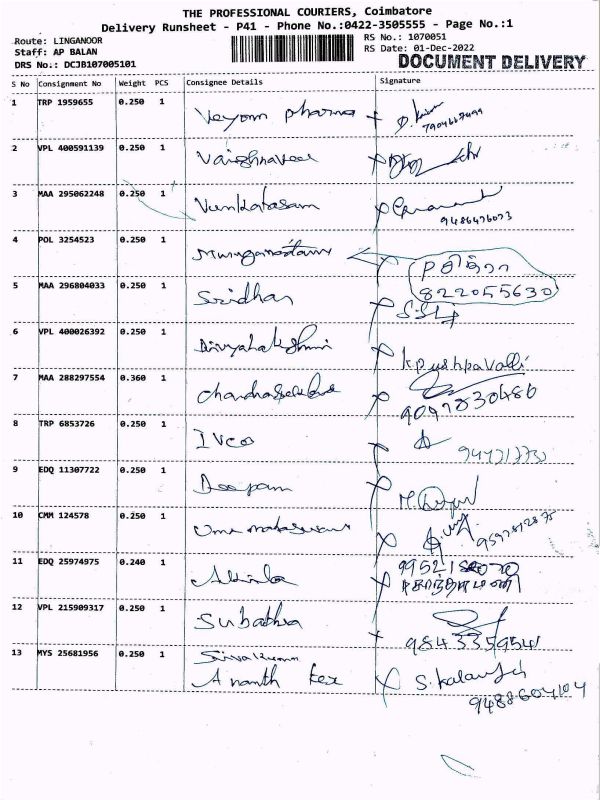 THE PROFESSIONAL COURIERS, Coimbatore
Delivery Runsheet - P41 - Phone No.:0422-3505555 - Page No.:1
Route: LINGANOOR
RS No.: 1070051
Staff: AP BALAN
RS Date: 01-Dec-2022
DRS No.: DCJB107005101
DOCUMENT DELIVERY
S No Consignment No Weight PCS Consignee Details Signature
1 TRP 1959655 0.250 1 Veyom pharma
2 VPL 400591139 0.250 1 Vaishnavee
3 MAA 295062248 0.250 1 Venkatasam
9486476073
4 POL 3254523 0.250 1
பவித்ரா
822055630
5 MAA 296804033 0.250 1 Sridhar
6 VPL 400026392 0.250 1 Divyalakshmi
K Pushpavalli
7 MAA 288297554 0.360 1
9097830486
8 TRP 6853726 0.250 1
9 EDQ 11307722 0.250 1 Deepam
10 CMM 124578 0.250 1
11 EDQ 25974975 0.240 1 Akila
12 VPL 215909317 0.250 1 Subathra
9843359541
13 MYS 25681956 0.250 1 Sivakumar
Ananth Kex
9488604104